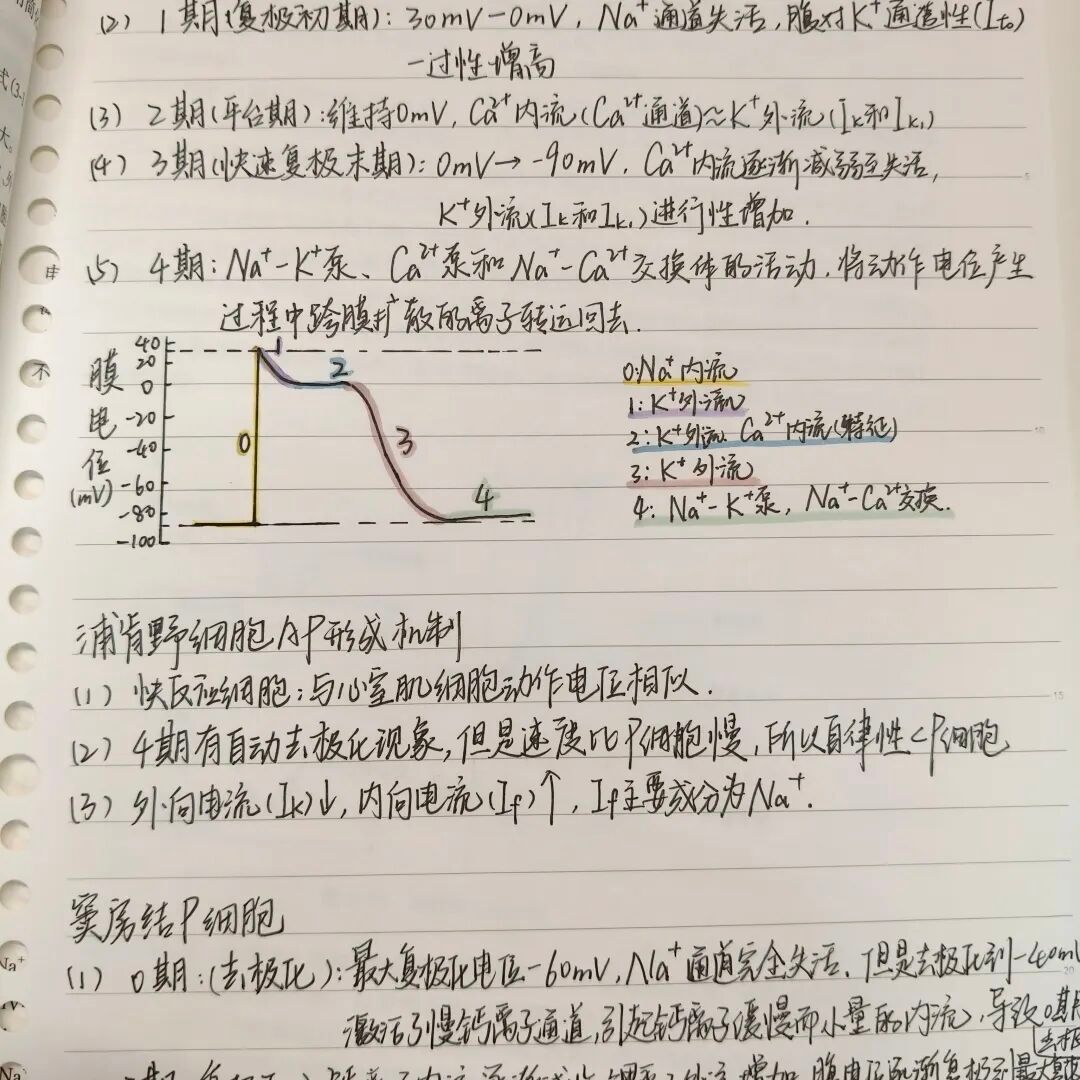 (2) 1期(复极初期): 30mV-0mV, Na⁺通道失活, 膜对K⁺通透性(Ito)
一过性增高
(3) 2期(平台期):维持0mV, Ca²⁺内流(Ca²⁺通道)≈K⁺外流(Ik和Ik₁)
(4) 3期(快速复极末期): 0mV→-90mV. Ca²⁺内流逐渐减弱至失活,
K⁺外流(Ik和Ik₁)进行性增加.
(5) 4期: Na⁺-K⁺泵、Ca²⁺泵和Na⁺-Ca²⁺交换体的活动, 将动作电位产生
过程中跨膜扩散的离子转运回去.
膜电位(mV)
40
20
0
-20
-40
-60
-80
-100
0
1
2
3
4
0:Na⁺内流
1: K⁺外流
2: K⁺外流. Ca²⁺内流(特征)
3: K⁺外流
4: Na⁺-K⁺泵, Na⁺-Ca²⁺交换.
浦肯野细胞AP形成机制
(1) 快反应细胞: 与心室肌细胞动作电位相似.
(2) 4期有自动去极化现象, 但是速度比P细胞慢, 所以自律性<P细胞
(3) 外向电流(Ik)↓, 内向电流(If)↑, If主要成分为Na⁺.
窦房结P细胞
(1) 0期:(去极化):最大复极化电位-60mV, Na⁺通道完全失活. 但是去极化到-40mV
激活了慢钙离子通道, 引起钙离子缓慢而小量的内流, 导致0期
去极